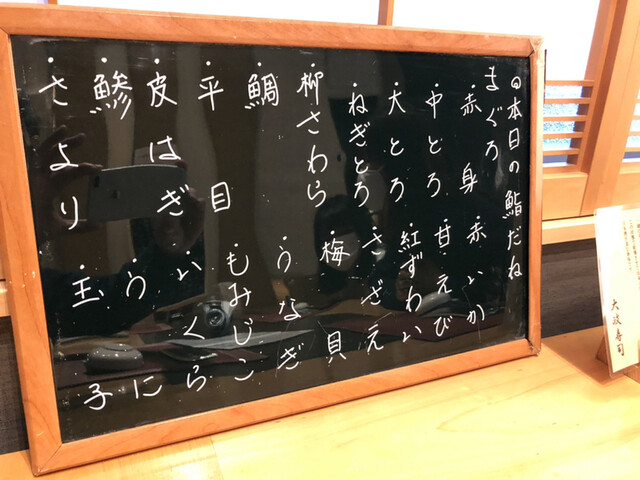 ◎本日の鮨だね
まぐろ
・赤身
・中とろ
・大とろ
・ねぎとろ
・柳さわら
・鯛
・平目
・皮はぎ
・鯵
・さより
・赤いか
・甘えび
・紅ずわい
・さざえ
・梅貝
・うなぎ
・もみじこ
・いくら
・うに
・玉子
大敏寿司